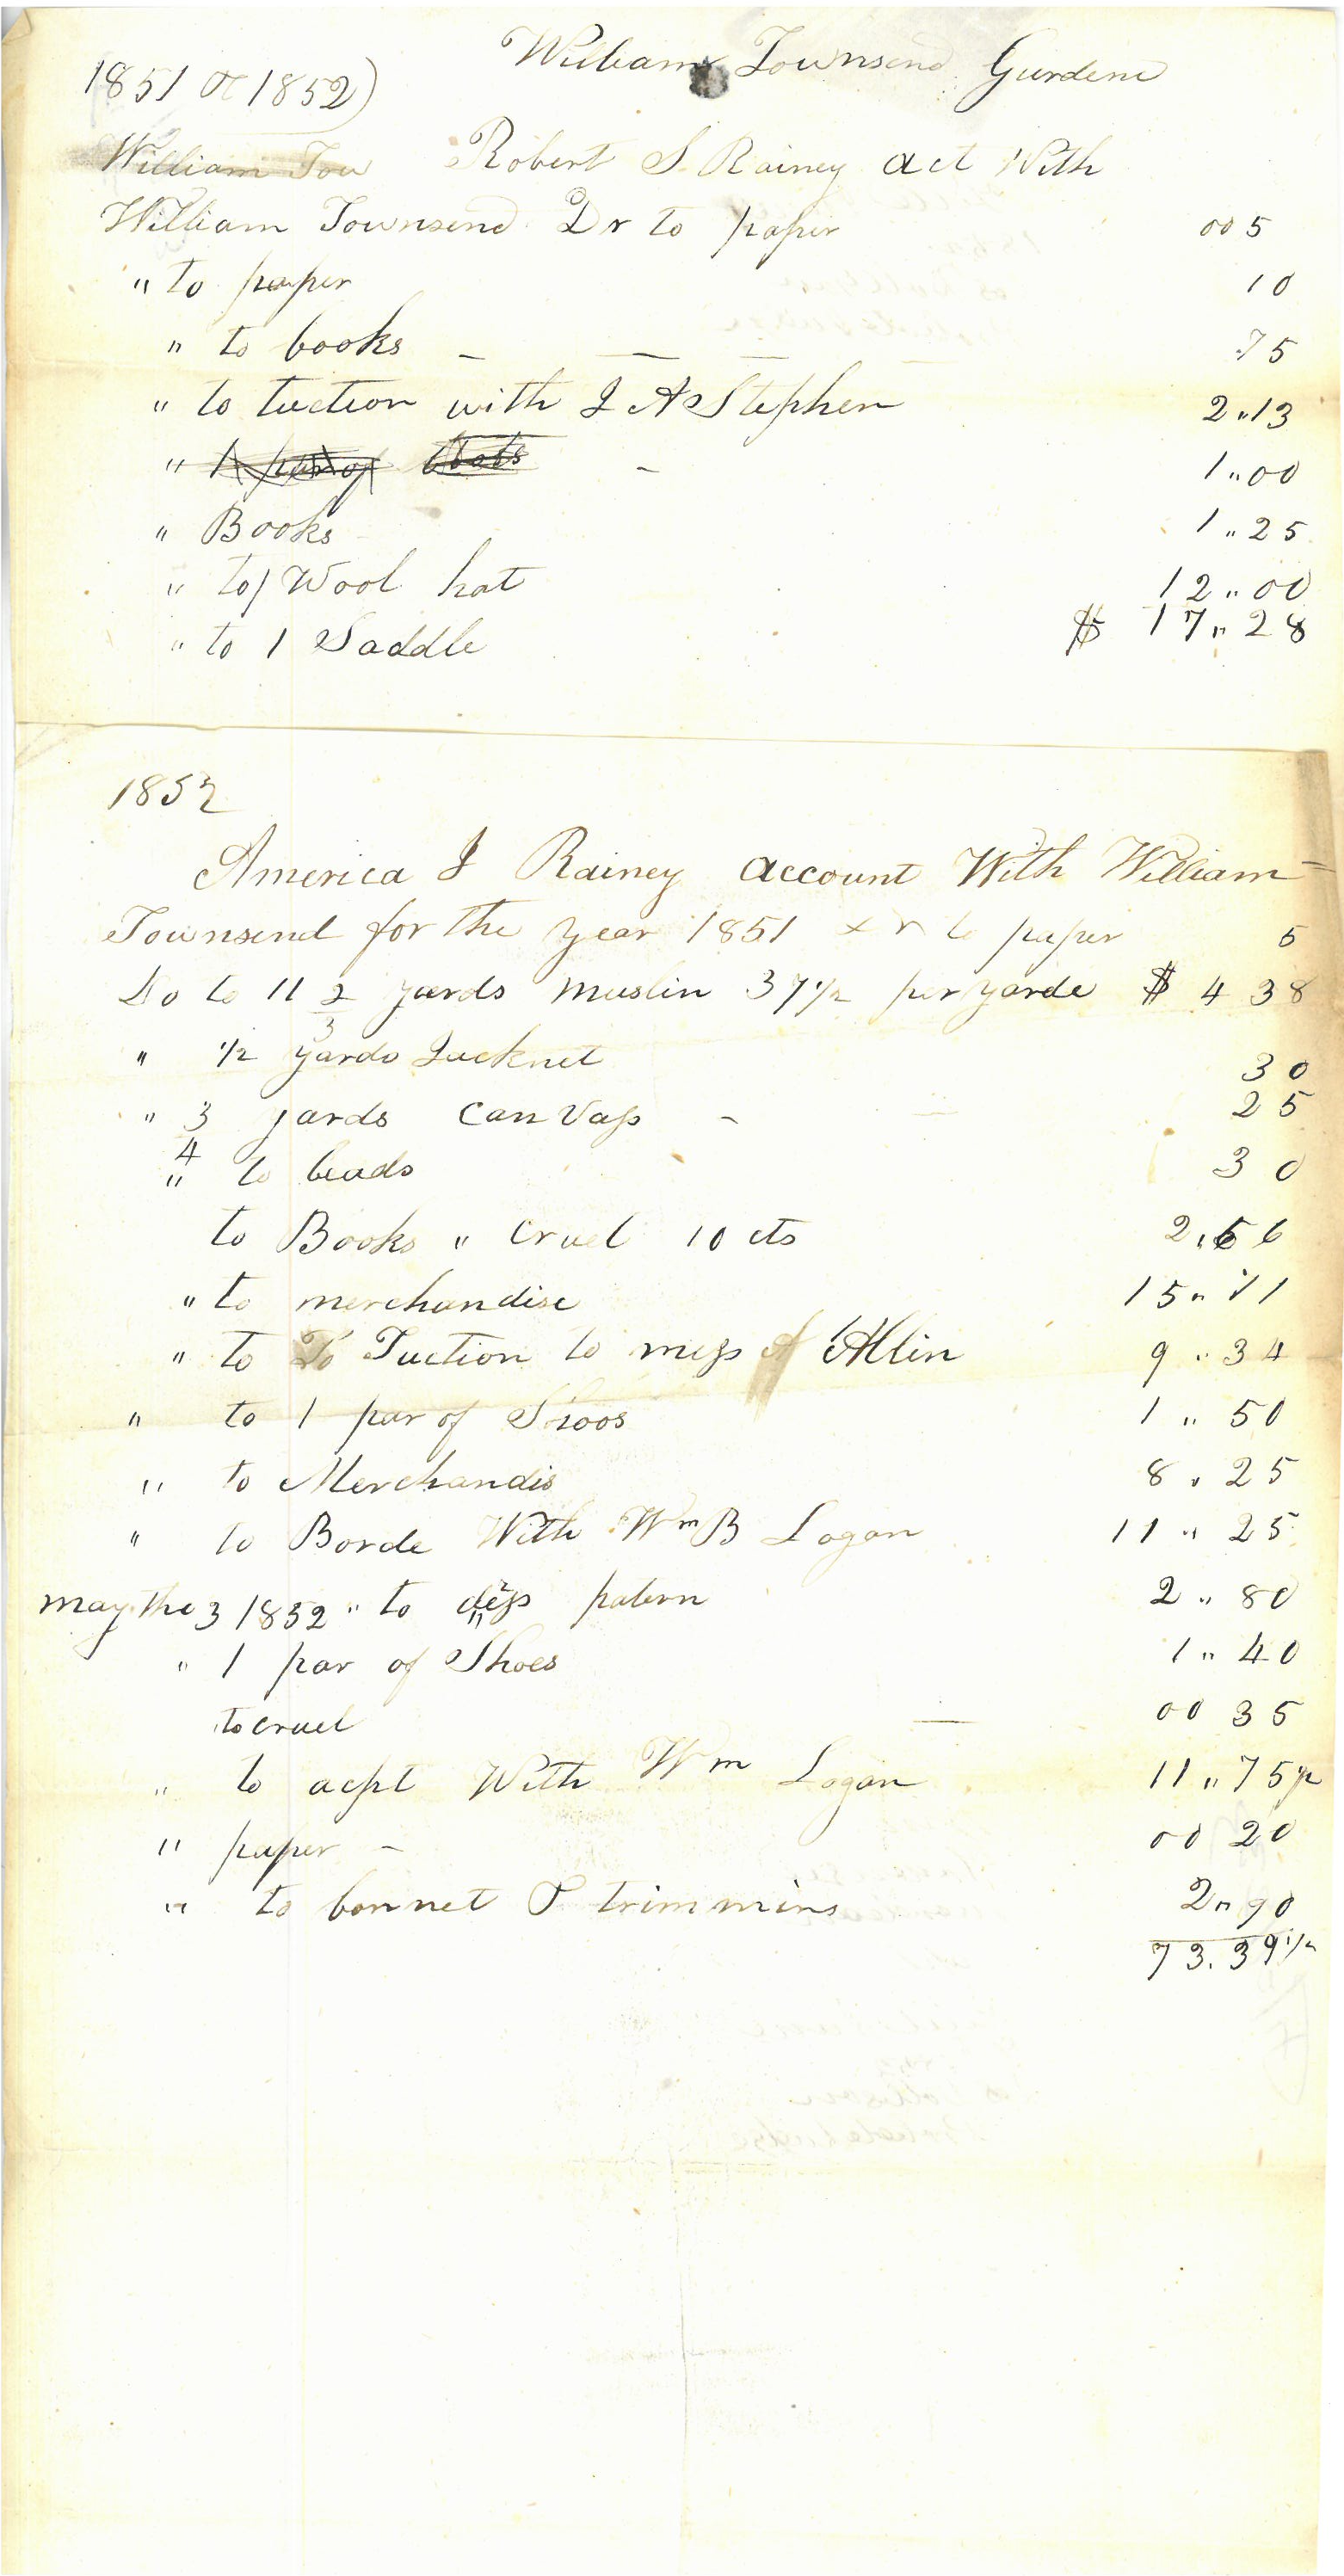 William Townsend Gurdene
1851 or 1852)
William Tow Robert S. Rainey act With
William Townsend Dr to paper 00 5
" to paper 10
" to books - — — 75
" to tuction with J A Stephen 2"13
" 1 par of boots - 1"00
" Books 1"25
" to 1 Wool hat 12"00
" to 1 Saddle $ 17"28
1852
America J Rainey account With William
Townsend for the year 1851 to paper 5
Do to 11 2/3 yards muslin 37 1/2 per yarde $ 4 38
" 1/2 yards 30
" 3/4 yards Canvass - 25
" to beads 30
to Books " cruel 10 cts 2"66
" to merchandise 15"11
" to To Tuction to miss A Allin 9"34
" to 1 par of Shoos 1"50
" to Merchandis 8"25
" to Borde With Wm B Logan 11"25
may the 3 1852 " to patern 2"80
" 1 par of Shoes 1"40
to cruel — 00 35
" to acpt With Wm Logan 11"75 1/2
" paper - 00 20
" to bonnet & trimmins 2"90
73.39 1/2